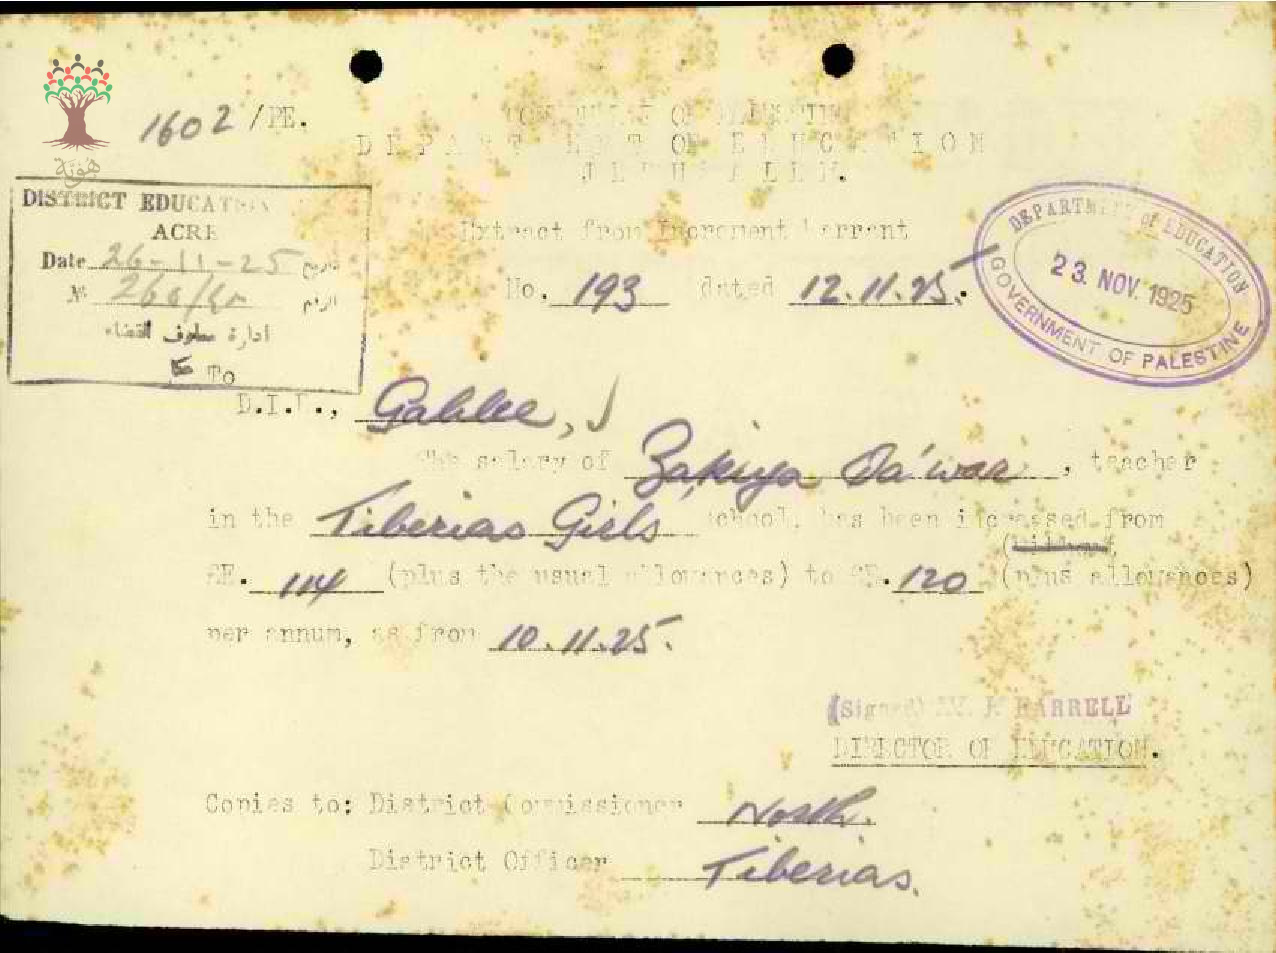 هوية
1602/PE.
GOVERNMENT OF PALESTINE
DEPARTMENT OF EDUCATION
JERUSALEM.
DISTRICT EDUCATION
ACRE
Date 26-11-25 تاريخ
№ الرقم
أدارة معارف القضاء
DEPARTMENT OF EDUCATION
23 NOV. 1925
GOVERNMENT OF PALESTINE
Extract from Increment Warrant
No. 193 dated 12.11.25.
To
D.I.E., Galilee,
The salary of Zakiya Da'war, teacher
in the Tiberias Girls School, has been increased from
£E. 114 (plus the usual allowances) to £E. 120 (plus allowances)
per annum, as from 10.11.25.
(Signed) W. J FARRELL
DIRECTOR OF EDUCATION.
Copies to: District Commissioner North.
District Officer Tiberias.